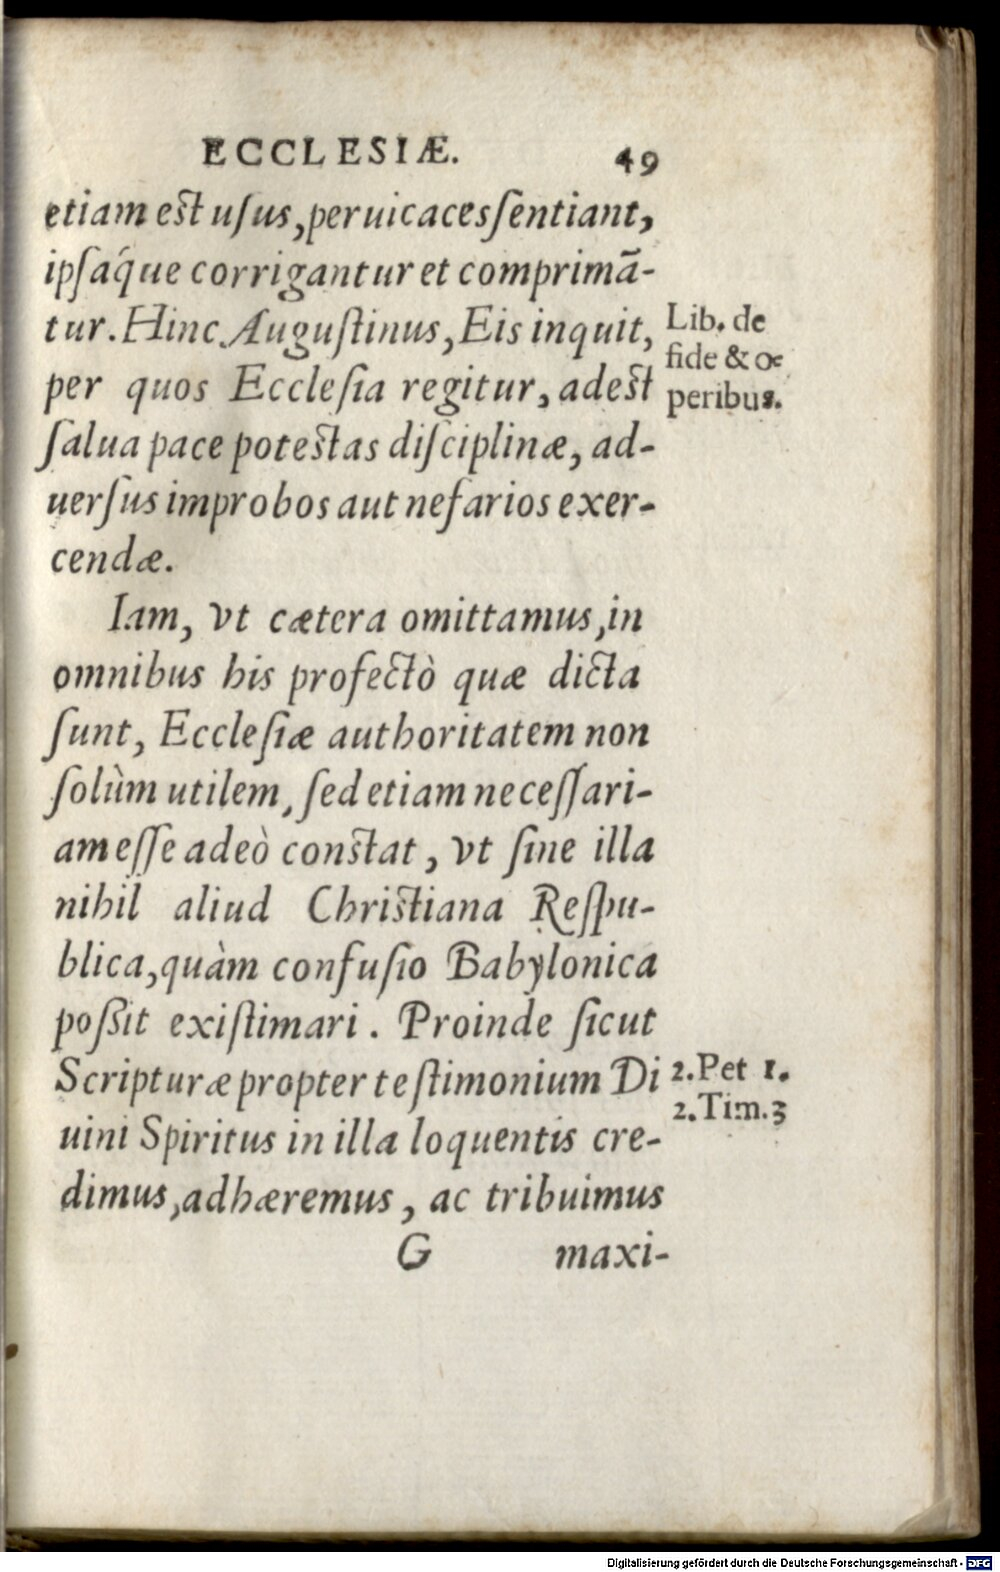 ECCLESIÆ. 49
etiam est usus, peruicaces ſentiant,
ipſáque corrigantur et comprimã-
tur. Hinc Auguſtinus, Eis inquit,
Lib. de
fide & o-
peribus.
per quos Eccleſia regitur, adest
ſalua pace potestas diſciplinæ, ad-
uerſus improbos aut nefarios exer-
cendæ.
Iam, vt cætera omittamus, in
omnibus his profectò quæ dicta
ſunt, Eccleſiæ authoritatem non
ſolùm utilem, ſed etiam neceſſari-
am eſſe adeò constat, vt ſine illa
nihil aliud Christiana Reſpu-
blica, quàm confuſio Babylonica
poßit exiſtimari. Proinde ſicut
Scripturæ propter teſtimonium Di
2. Pet 1.
2. Tim. 3
uini Spiritus in illa loquentis cre-
dimus, adhæremus, ac tribuimus
G maxi-
Digitalisierung gefördert durch die Deutsche Forschungsgemeinschaft - DFG